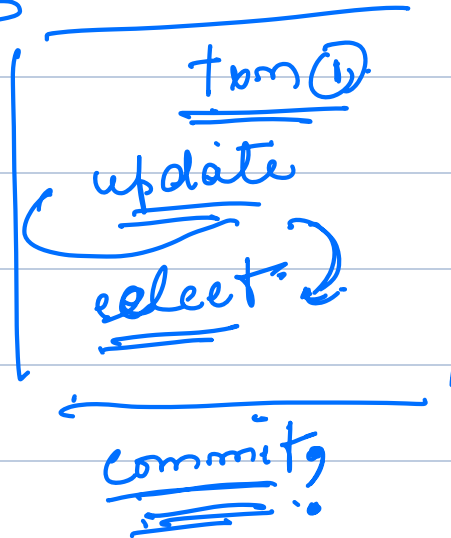 txn ①
update
select
commit;